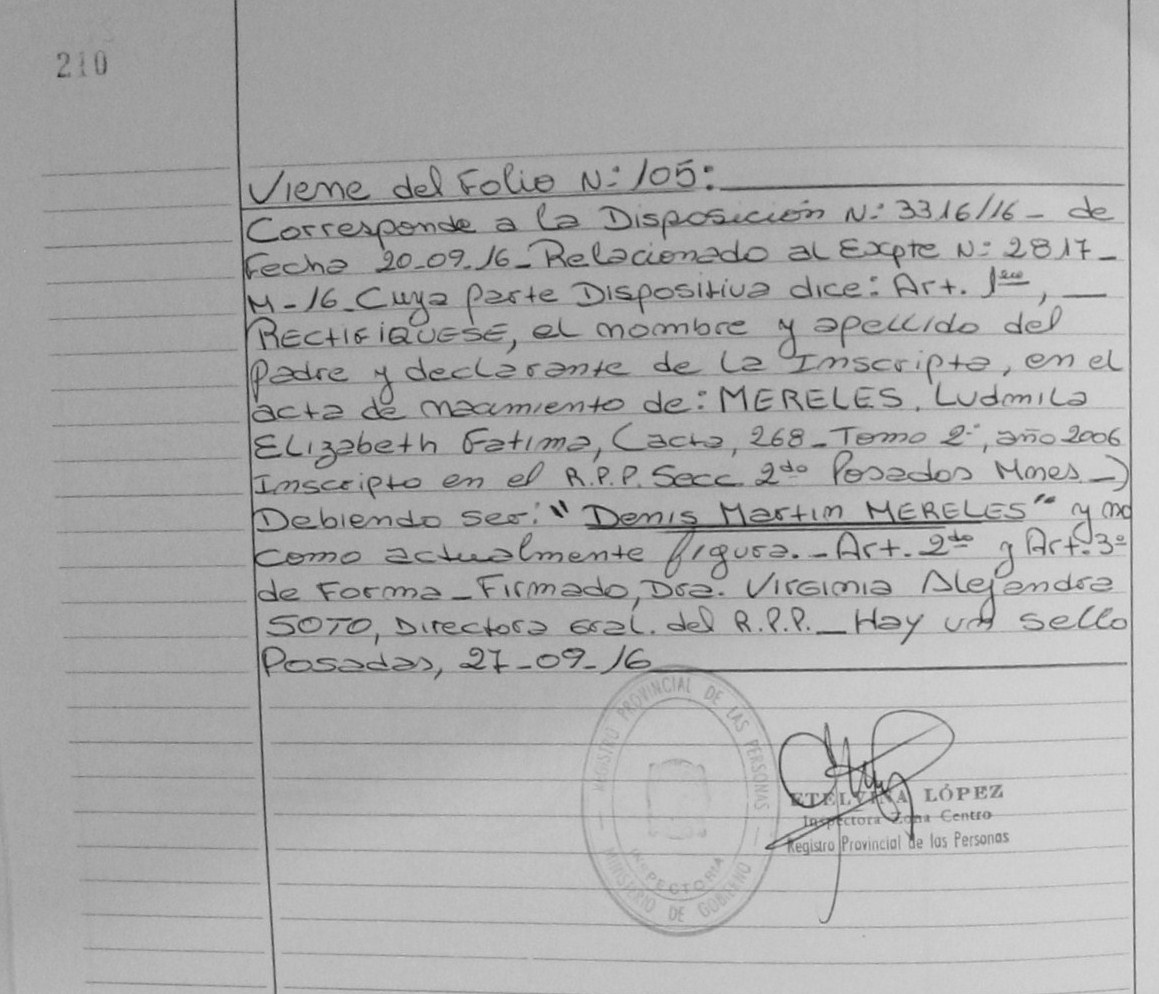 210
Viene del Folio N: 105:
Corresponde a la Disposición N: 3316/16 - de
Fecha 20-09-16 - Relacionado al Expte N: 2817 -
M - 16 - Cuya parte Dispositiva dice: Art. 1ero, —
RECTIFIQUESE, el nombre y apellido del
Padre y declarante de la Inscripta, en el
acta de nacimiento de: MERELES, Ludmila
Elizabeth Fatima, (acta, 268 - Tomo 2º, año 2006
Inscripto en el R.P.P. Secc 2do Posadas Mnes -)
Debiendo ser: "Denis Martin MERELES" y no
como actualmente figura. - Art. 2do y Art. 3º
de Forma - Firmado, Dra. Virginia Alejandra
SOTO, Directora Gral. del R.P.P. - Hay un sello
Posadas, 27-09-16
REGISTRO PROVINCIAL DE LAS PERSONAS
INSPECTORIA
MINISTERIO DE GOBIERNO
ETELVINA LÓPEZ
Inspectora Zona Centro
Registro Provincial de las Personas